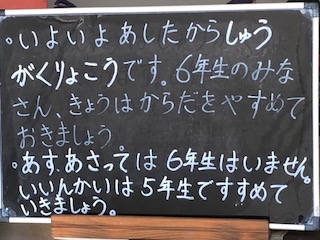 。いよいよ あしたから しゅう
がくりょこうです。6年生のみな
さん、きょうは からだを やすめて
おきましょう。
。あす、あさっては 6年生はいません。
いいんかいは 5年生ですすめて
いきましょう。